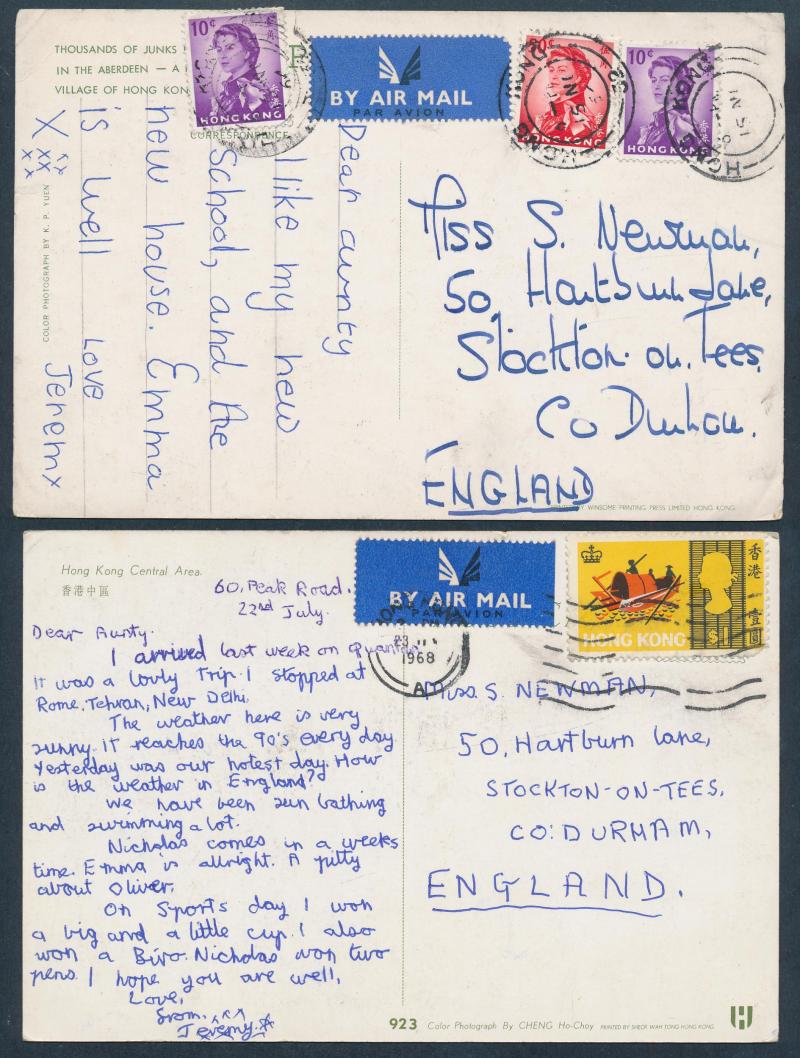 THOUSANDS OF JUNKS
IN THE ABERDEEN — A
VILLAGE OF HONG KONG
CORRESPONDENCE
10c
HONG KONG
BY AIR MAIL
PAR AVION
HONG KONG
10c
HONG KONG
HONG KONG
Dear aunty
I like my new
School, and the
new house. Emma
is well
Love
Jeremy
X XX XX
COLOR PHOTOGRAPH BY K. P. YUEN
Miss S. Newman,
50, Hartburn Lane,
Stockton on Tees,
Co Durham.
ENGLAND
WINSOME PRINTING PRESS LIMITED HONG KONG
Hong Kong Central Area.
香港中區
60, Peak Road.
22nd July.
BY AIR MAIL
PAR AVION
香港 壹圓
HONG KONG $1
1968
Dear Aunty.
I arrived last week on Quantas
It was a lovly Trip. I stopped at
Rome, Tehran, New Delhi,
The weather here is very
sunny. It reaches the 90's every day
Yesterday was our hotest day. How
is the weather in England?
We have been sun bathing
and swimming a lot.
Nicholas comes in a weeks
time. Emma is allright. A pitty
about Oliver.
On Sports day I won
a big and a little cup. I also
won a Biro. Nicholas won two
pens. I hope you are well,
Love,
from,
Jeremy.
Miss. S. NEWMAN,
50, Hartburn lane,
STOCKTON-ON-TEES,
CO: DURHAM,
ENGLAND.
923 Color Photograph By CHENG Ho-Choy PRINTED BY SHECK WAH TONG HONG KONG.